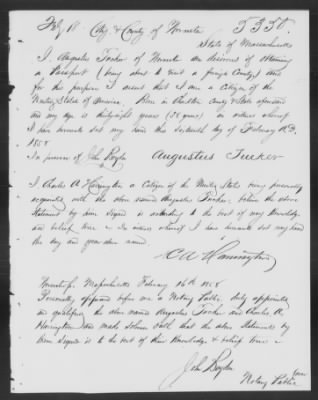 City & County of Worcester
State of Massachusetts
I, Augustus Tucker of Worcester am desirous of obtaining
a Passport (being about to visit a foreign Country) And
for this purpose I assert that I am a Citizen of the
United States of America, Born in County & State aforesaid
and my age is thirty eight years (38 years) in witness whereof
I have hereunto set my hand this Sixteenth day of February A.D.
1858
In presence of John Boyden Augustus Tucker
I Charles A Harrington a Citizen of the United States being personally
acquainted with the above named Augustus Tucker, believe the above
Statement by him Signed is according to the best of my Knowledge
and belief true - In witness whereof I have hereunto set my hand
the day and year above named.
C A Harrington
Worcester, Massachusetts February 16th 1858
Personally appeared before me a Notary Public, duly appointed
and qualified, the above named Augustus Tucker and Charles A.
Harrington and made Solemn Oath that the above Statements by
them Signed is to the best of their Knowledge & belief true -
John Boyden
Notary Public